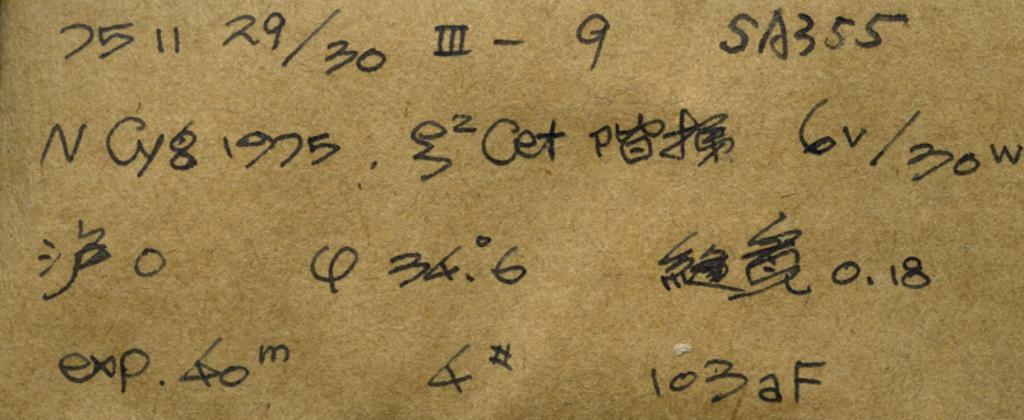 75 11 29/30 III - 9 SA355
N Cyg 1975. ξ² Cet 階操 6v/30w
0 φ 34.°6 縦寛 0.18
exp. 40ᵐ 4# 103aF